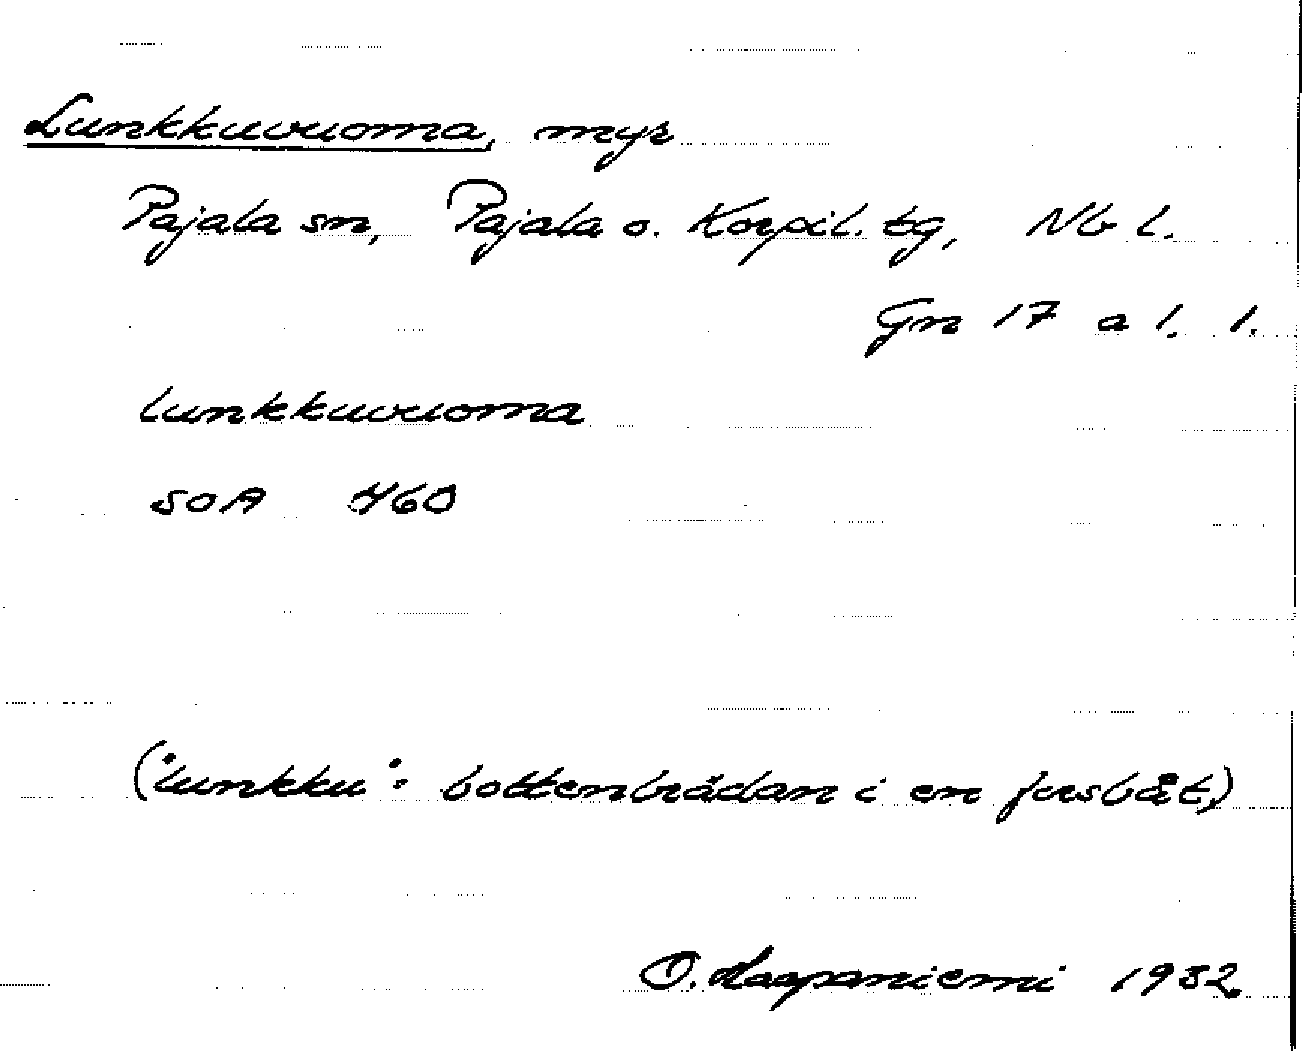 Lunkkuvuoma, myr
Pajala sn, Pajala o. Korpil. tg, Nb l.
Gn 17 a l. 1.
lunkkuvuoma
SOA 460
("lunkku": bottenbrädan i en forsbåt)
O. Haapaniemi 1932